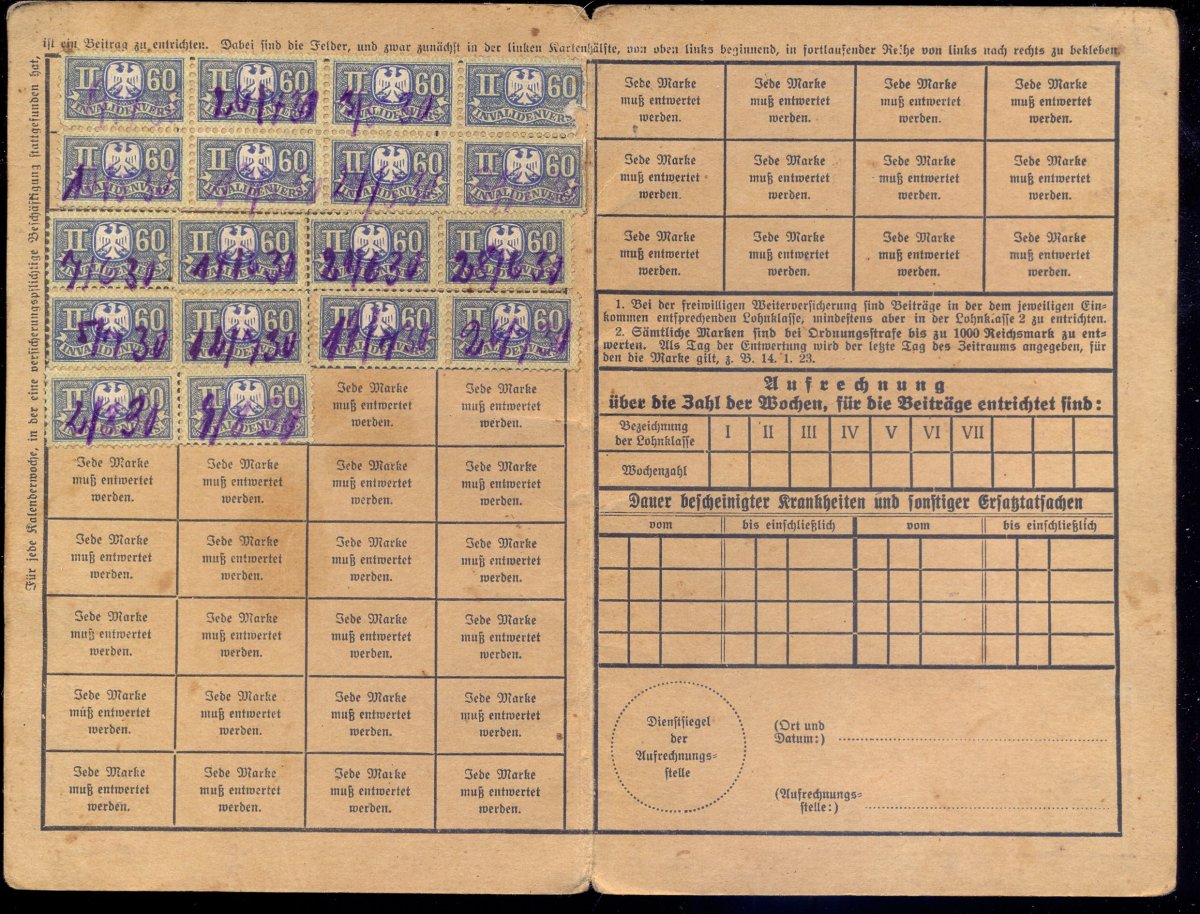 ist ein Beitrag zu entrichten. Dabei sind die Felder, und zwar zunächst in der linken Kartenhälfte, von oben links beginnend, in fortlaufender Reihe von links nach rechts zu bekleben.
Für jede Kalenderwoche, in der eine versicherungspflichtige Beschäftigung stattgefunden hat,
II 60 II 60 II 60 II 60
INVALIDENVERS. INVALIDENVERS. INVALIDENVERS. INVALIDENVERS.
II 60 II 60 II 60 II 60
INVALIDENVERS. INVALIDENVERS. INVALIDENVERS. INVALIDENVERS.
II 60 II 60 II 60 II 60
7/6 30 14/6 30 21/6 30 28/6 30
INVALIDENVERS. INVALIDENVERS. INVALIDENVERS. INVALIDENVERS.
II 60 II 60 II 60 II 60
5/7 30 12/7 30 19/7 30 26/7 30
INVALIDENVERS. INVALIDENVERS. INVALIDENVERS. INVALIDENVERS.
II 60 II 60 Jede Marke Jede Marke
2/8 30 muß entwertet muß entwertet
INVALIDENVERS. INVALIDENVERS. werden. werden.
Jede Marke Jede Marke Jede Marke Jede Marke
muß entwertet muß entwertet muß entwertet muß entwertet
werden. werden. werden. werden.
Jede Marke Jede Marke Jede Marke Jede Marke
muß entwertet muß entwertet muß entwertet muß entwertet
werden. werden. werden. werden.
Jede Marke Jede Marke Jede Marke Jede Marke
muß entwertet muß entwertet muß entwertet muß entwertet
werden. werden. werden. werden.
Jede Marke Jede Marke Jede Marke Jede Marke
muß entwertet muß entwertet muß entwertet muß entwertet
werden. werden. werden. werden.
Jede Marke Jede Marke Jede Marke Jede Marke
muß entwertet muß entwertet muß entwertet muß entwertet
werden. werden. werden. werden.
Jede Marke Jede Marke Jede Marke Jede Marke
muß entwertet muß entwertet muß entwertet muß entwertet
werden. werden. werden. werden.
Jede Marke Jede Marke Jede Marke Jede Marke
muß entwertet muß entwertet muß entwertet muß entwertet
werden. werden. werden. werden.
Jede Marke Jede Marke Jede Marke Jede Marke
muß entwertet muß entwertet muß entwertet muß entwertet
werden. werden. werden. werden.
1. Bei der freiwilligen Weiterversicherung sind Beiträge in der dem jeweiligen Ein-
kommen entsprechenden Lohnklasse, mindestens aber in der Lohnklasse 2 zu entrichten.
2. Sämtliche Marken sind bei Ordnungsstrafe bis zu 1000 Reichsmark zu ent-
werten. Als Tag der Entwertung wird der letzte Tag des Zeitraums angegeben, für
den die Marke gilt, z. B. 14. 1. 23.
Aufrechnung
über die Zahl der Wochen, für die Beiträge entrichtet sind:
Bezeichnung
der Lohnklasse I II III IV V VI VII
Wochenzahl
Dauer bescheinigter Krankheiten und sonstiger Ersatztatsachen
vom bis einschließlich vom bis einschließlich
Dienstsiegel
der
Aufrechnungs-
stelle
(Ort und
Datum:)
(Aufrechnungs-
stelle:)